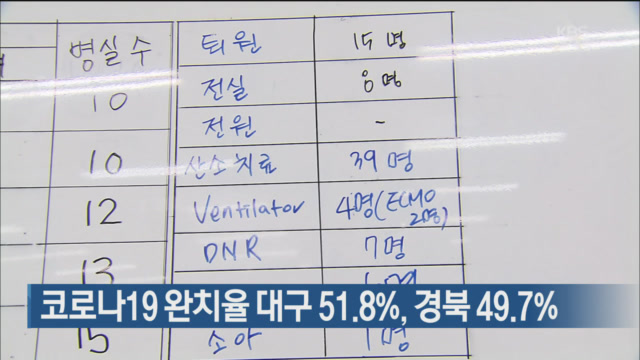 KBS
병실 수
10
10
12
13
15
퇴원 15명
전실 0명
전원 -
산소치료 39명
Ventilator 4명(ECMO
2명)
DNR 7명
1명
소아 1명
코로나19 완치율 대구 51.8%, 경북 49.7%